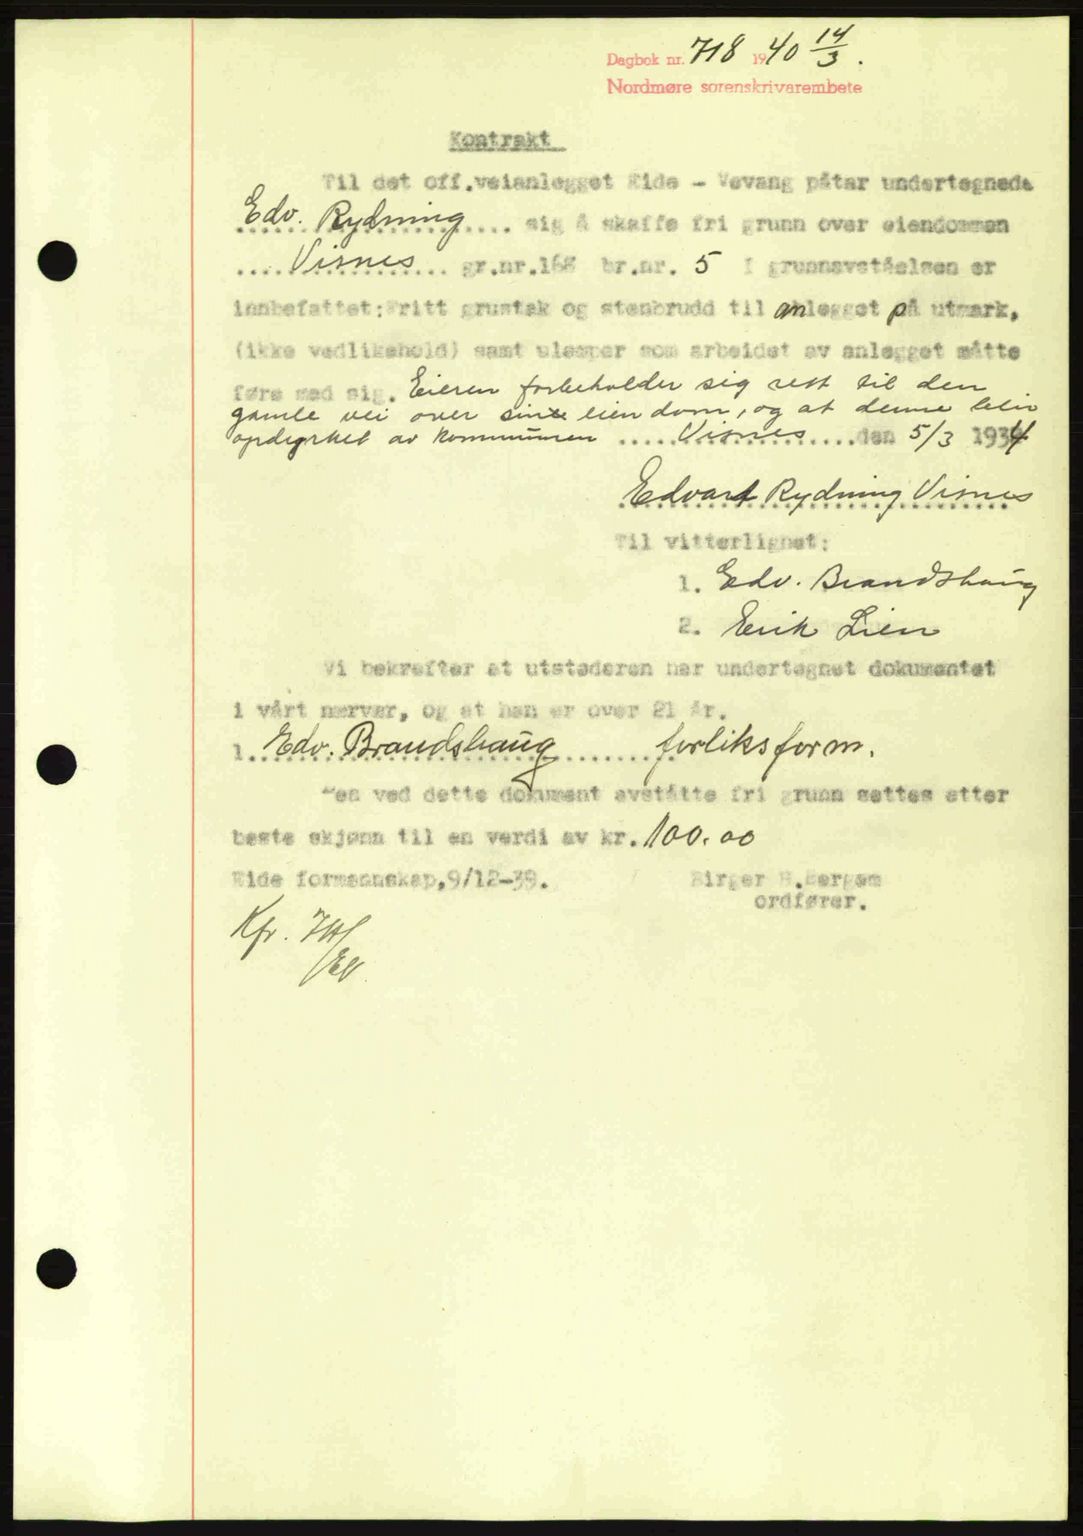 Dagbok nr. 718 1940 14/3.
Nordmøre sorenskriverembete
Kontrakt
Til det off.veianlegget Eide - Vevang påtar undertegnede
Edv. Rydning sig å skaffe fri grunn over eiendommen
....Visnes.......... gr.nr.168 br.nr. 5 I grunnavståelsen er
innbefattet:Fritt grustak og stenbrudd til anlegget på utmark,
(ikke vedlikehold) samt ulemper som arbeidet av anlegget måtte
føre med sig. Eieren forbeholder sig rett til den
gamle vei over sin eiendom, og at denne blir
opdyrket av kommunen .....Visnes..........den 5/3 1934
Edvard Rydning Visnes
Til vitterlighet:
1. Edv. Brandshaug
2. Erik Lien
Vi bekrefter at utstederen har undertegnet dokumentet
i vårt nærvær, og at han er over 21 år.
1. Edv. Brandshaug forliksform.
Den ved dette dokument avståtte fri grunn settes etter
beste skjønn til en verdi av kr. 100.00
Eide formannskap,9/12-39. Birger H.Bergem
ordfører.
Kfr.